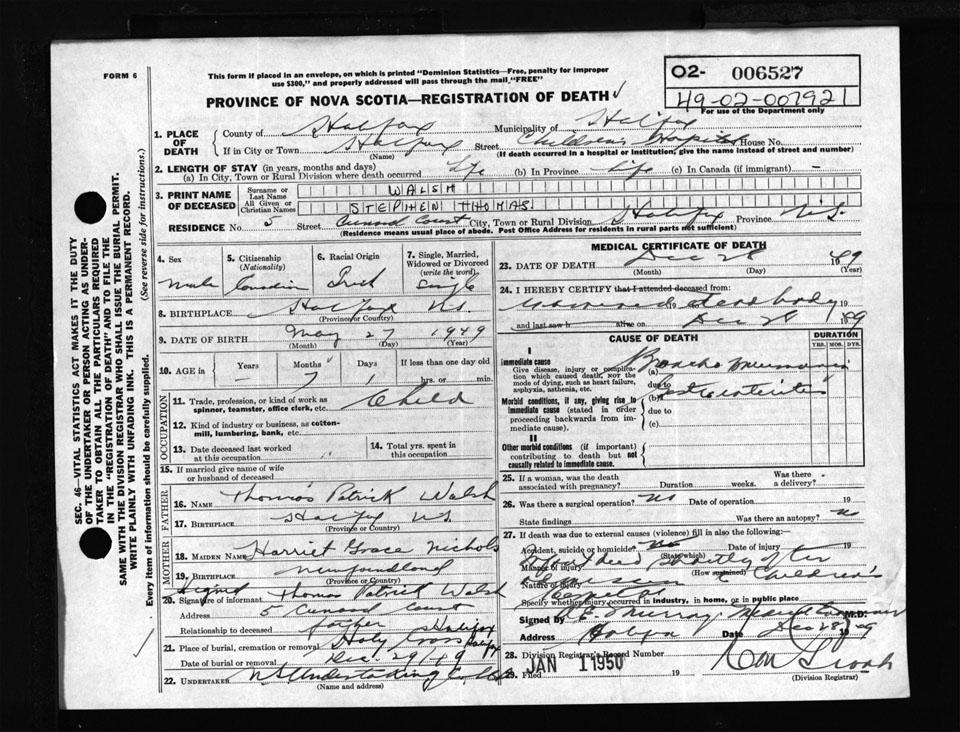 FORM 6
This form if placed in an envelope, on which is printed "Dominion Statistics—Free, penalty for improper
use $300," and properly addressed will pass through the mail, "FREE"
PROVINCE OF NOVA SCOTIA—REGISTRATION OF DEATH
02- 006527
49-02-007921
For use of the Department only
1. PLACE OF DEATH
County of Halifax Municipality of Halifax
If in City or Town Halifax Street Children's Hospital House No.
(Name) (If death occurred in a hospital or institution, give the name instead of street and number)
2. LENGTH OF STAY (in years, months and days)
(a) In City, Town or Rural Division where death occurred life (b) In Province life (c) In Canada (if immigrant) —
3. PRINT NAME OF DECEASED
Surname or Last Name WALSH
All Given or Christian Names STEPHEN THOMAS
RESIDENCE No. 5 Street Cunard Court City, Town or Rural Division Halifax Province N.S.
(Residence means usual place of abode. Post Office Address for residents in rural parts not sufficient)
4. Sex Male
5. Citizenship (Nationality) Canadian
6. Racial Origin Irish
7. Single, Married, Widowed or Divorced (write the word) Single
8. BIRTHPLACE Halifax N.S.
(Province or Country)
9. DATE OF BIRTH May 27 1949
(Month) (Day) (Year)
10. AGE in Years — Months 7 Days 1 If less than one day old
hrs. or min.
OCCUPATION
11. Trade, profession, or kind of work as spinner, teamster, office clerk, etc. Child
12. Kind of industry or business, as cotton-mill, lumbering, bank, etc.
13. Date deceased last worked at this occupation
14. Total yrs. spent in this occupation
15. If married give name of wife or husband of deceased
FATHER
16. Name Thomas Patrick Walsh
17. Birthplace Halifax N.S.
(Province or Country)
MOTHER
18. Maiden Name Harriet Grace Nichols
19. Birthplace Newfoundland
(Province or Country)
Signed
20. Signature of informant Thomas Patrick Walsh
Address 5 Cunard Court
Relationship to deceased father Halifax
21. Place of burial, cremation or removal Holy Cross Halifax
Date of burial or removal Dec. 29/49
22. UNDERTAKER N.S. Undertaking Co.
(Name and address)
MEDICAL CERTIFICATE OF DEATH
23. DATE OF DEATH Dec 28 1949
(Month) (Day) (Year)
24. I HEREBY CERTIFY that I attended deceased from:
19 dead body 19
and last saw h alive on Dec 28 1949
CAUSE OF DEATH
DURATION
YRS. MOS. DYS.
I
Immediate cause
Give disease, injury or complication which caused death, not the mode of dying, such as heart failure, asphyxia, asthenia, etc.
(a) Broncho pneumonia
due to
Morbid conditions, if any, giving rise to immediate cause (stated in order proceeding backwards from immediate cause).
due to
(c)
II
Other morbid conditions (if important) contributing to death but not causally related to immediate cause.
25. If a woman, was the death associated with pregnancy? Duration weeks. Was there a delivery?
26. Was there a surgical operation? no Date of operation 19
State findings Was there an autopsy? no
27. If death was due to external causes (violence) fill in also the following:—
Accident, suicide or homicide? no Date of injury 19
(State which)
Manner of injury died shortly after
(How sustained)
Nature of injury admission Children's
Hospital
Specify whether injury occurred in industry, in home, or in public place
Signed by M.D.
Address Halifax Date Dec 28 1949
28. Division Registrar's Record Number
29. Filed JAN 1 1950 19
(Division Registrar)
SEC. 46—VITAL STATISTICS ACT MAKES IT THE DUTY
OF THE UNDERTAKER OR PERSON ACTING AS UNDER-
TAKER TO OBTAIN ALL THE PARTICULARS REQUIRED
IN THE "REGISTRATION OF DEATH" AND TO FILE THE
SAME WITH THE DIVISION REGISTRAR WHO SHALL ISSUE THE BURIAL PERMIT.
WRITE PLAINLY WITH UNFADING INK. THIS IS A PERMANENT RECORD.
Every item of information should be carefully supplied. (See reverse side for instructions.)